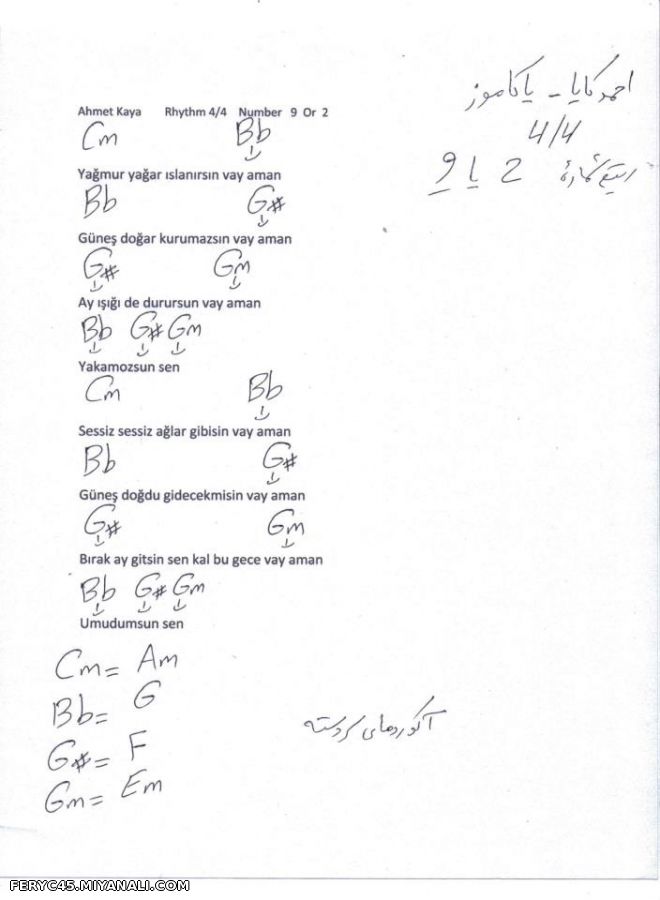 احمد کایا - یاکاموز
4/4
2 یا 9
Ahmet Kaya Rhythm 4/4 Number 9 Or 2
Cm Bb
Yağmur yağar ıslanırsın vay aman
Bb G#
Güneş doğar kurumazsın vay aman
G# Gm
Ay ışığı de durursun vay aman
Bb G# Gm
Yakamozsun sen
Cm Bb
Sessiz sessiz ağlar gibisin vay aman
Bb G#
Güneş doğdu gidecekmisin vay aman
G# Gm
Bırak ay gitsin sen kal bu gece vay aman
Bb G# Gm
Umudumsun sen
Cm= Am
Bb= G
G#= F
Gm= Em
آکوردهای
FERYC45.MIYANALI.COM